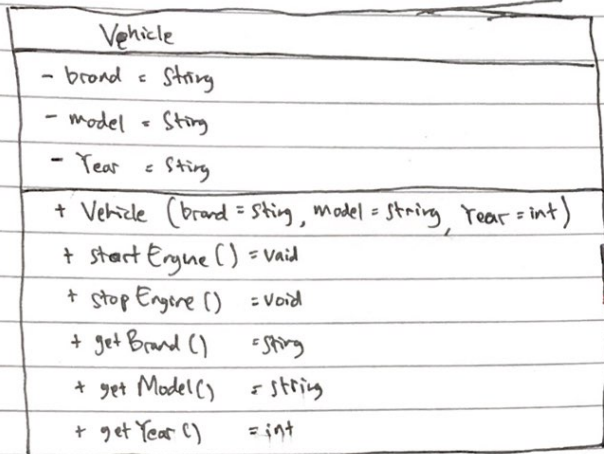 Vehicle
- brand = String
- model = Sting
- Year = Sting
+ Vehicle (brand = Sting, model = String, Year = int)
+ start Engine () = void
+ stop Engine () = void
+ get Brand () = Sting
+ get Model () = String
+ get Year () = int